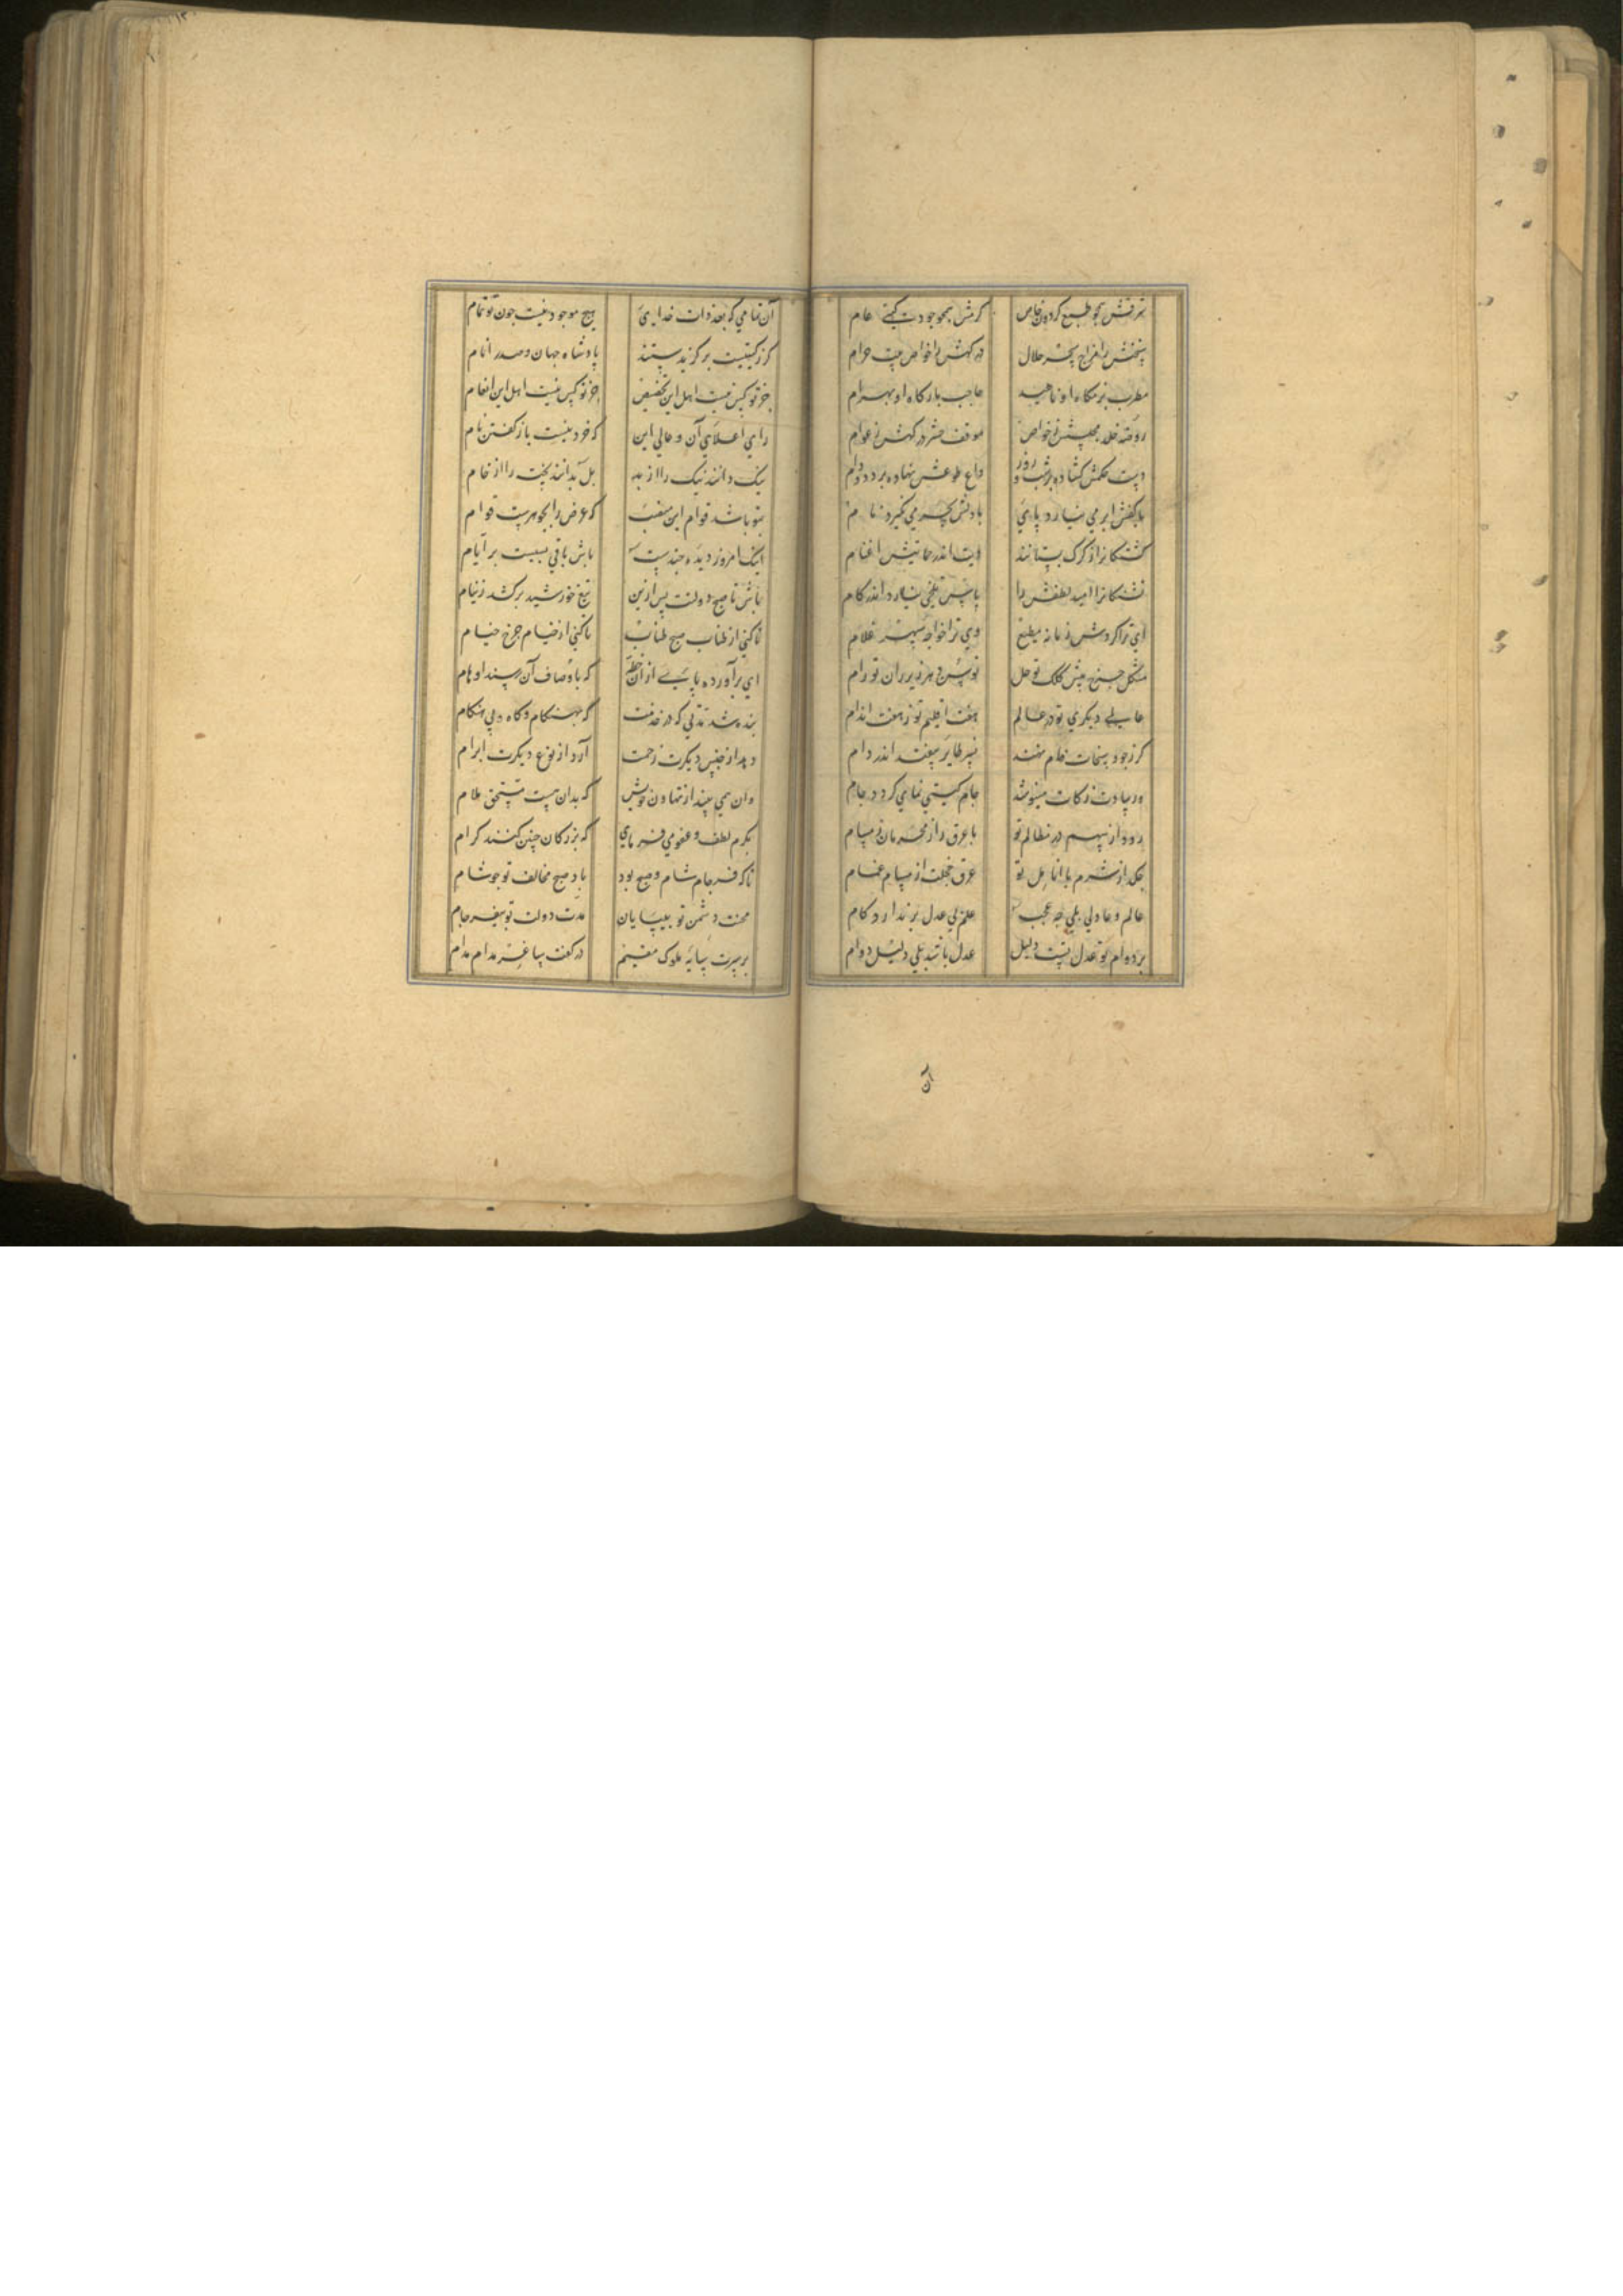 شرفش همچو طبع گردون خاص کرمش همچو جود گیتی عام
سخنش را مزاج سحر حلال درگهش را خواص بیت حرام
مطرب بزمگاه او ناهید حاجب بارگاه او بهرام
روضه خلد مجلسش ز خواص موقف حشر درگهش ز عوام
دست حکمش گشاده بر شب و روز داغ طوعش نهاده بر دد و دام
با کفش ابر می نیارد پای با دلش بحر می نگیرد نام
کشتکانرا ز گرگ بستاند است اندر حمایتش اغنام
تشنکانرا امید لطفش را یأس تلخی نیارد اندر کام
ای ترا گردش زمانه مطیع وی ترا خواجه سپهر غلام
مشکل چرخ پیش کلک تو حل توسن دهر زیر ران تو رام
عالمی دیگری تو در عالم هفت اقلیم تو ز هفت اندام
گر ز جودت سخات دام نهند نسر طایر بیفتد اندر دام
ور بیادت زکات مینوشد جام گیتی نمای گردد جام
رود از سهم در مظالم تو با عرق راز مجرمان ز مسام
چکد از شرم با انامل تو عرق خجلت از مسام غمام
عالم و عادلی بلی چه عجب علم بی عدل بر ندارد کام
بر دوام تو عدل تست دلیل عدل باشد بلی دلیل دوام
آن
آن تمامی که بعد ذات خدای هیچ موجود نیست چون تو تمام
کز گیتیت برگزیدستند پادشاه جهان و صدر انام
جز تو کس نیست اهل این تخصیص جز تو کس نیست اهل این انعام
رای اعلای آن و عالی این که خرد نیست باز گفتن نام
نیک دانند نیک را از بد بل بدانند پخت را از خام
بتو باشد قوام این منصب که عرض را بجوهرست قوام
اینک امروز دیده چندست باش باقی بسیست بر ایام
باش تا صبح دولت پس ازین تیغ خورشید برکشد ز نیام
تا کنی از طناب صبح طناب تا کنی از خیام چرخ خیام
ای برآورده پایه از آن خطه که باوصاف آن رسند اوهام
بنده شد مدتی که در خدمت گه بهنگام و گاه بی هنگام
دهد از جنس دیگرت زحمت آرد از نوع دیگرت ابرام
وان همی بیند از تهاون خویش که بدان هست مستحق ملام
بکرم لطف و عفو می فرمای که بزرگان چنین کنند کرام
تا که فرجام شام و صبح بود باد صبح مخالف تو چو شام
محنت دشمن تو بیپایان مدت دولت تو بیفرجام
بر سرت سایه ملوک مقیم در کفت ساغر مدام مدام